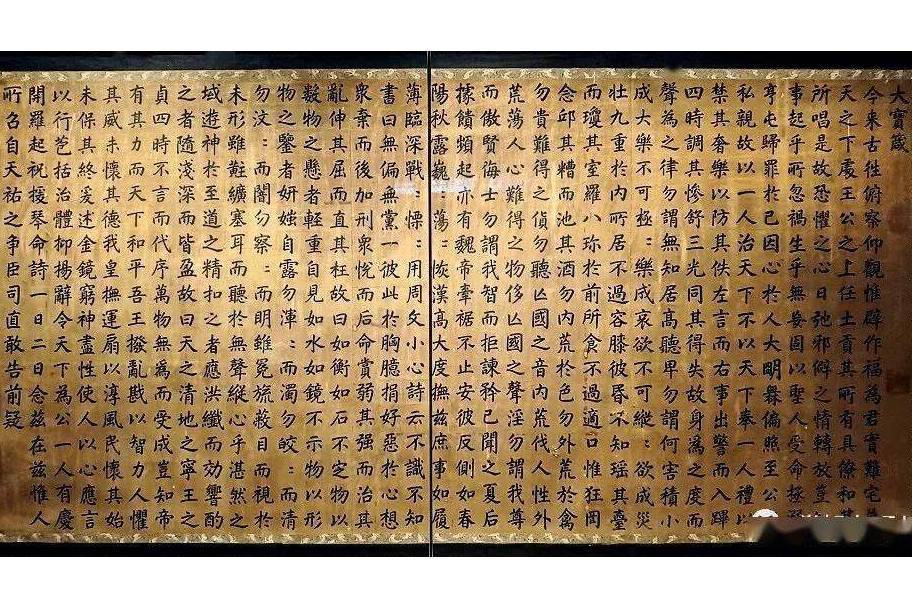 大寶箴
今来古往俯察仰觀惟辟作福為君實難宅
天之下處王公之上任土貢其所有具僚和其
所唱是故恐懼之心日弛邪僻之情轉放豈
事起乎所忽禍生乎無妄固以聖人受命拯
亨屯歸罪於己因心於人大明無偏照至公
私親故以一人治天下不以天下奉一人禮以
禁其奢樂以防其佚左言而右事出警而入蹕
四時調其慘舒三光同其得失故身為之度而
聲為之律勿謂無知居高聽卑勿謂何害積小
成大樂不可極：樂成哀欲不可縱：欲成災
壯九重於内所居不過容膝彼昏不知瑶其臺
而瓊其室羅八珎於前所食不過適口惟狂罔
念邱其糟而池其酒勿内荒於色勿外荒於禽
勿貴難得之貨勿聽亡國之音内荒伐人性外
荒蕩人心難得之物侈亡國之聲淫勿謂我尊
而傲賢侮士勿謂我智而拒諫矜己聞之夏后
據饋頻起亦有魏帝牽裾不止安彼反側如春
陽秋露巍：蕩：恢漢高大度撫兹庶事如履
薄臨深戰：慄：用周文小心詩云不識不知
書曰無偏無黨一彼此於胸臆捐好惡於心想
衆棄而後加刑衆悅而后命賞弱其强而治其
亂伸其屈而直其枉故曰如衡如石不定物以
數物之懸者輕重自見如水如鏡不示物以形
物之鑒者妍媸自露勿渾：而濁勿皎：而清
勿汶 而闇勿察：而明雖冕旒蔽目而視於
未形雖黈纊塞耳而聽於無聲縱心乎湛然之
域遊神於至道之精扣之者應洪纖而効響酌
之者隨淺深而皆盈故曰天之清地之寧王之
貞四時不言而代序萬物無為而受成豈知帝
有其力而天下和平吾王撥亂戡以智力人懼
其威未懷其德我皇撫運扇以淳風民懷其始
未保其終爰述金鏡窮神盡性使人以心應言
以行苞括治體抑揚辭令天下為公一人有慶
開羅起祝援琴命詩一日二日念兹在兹惟人
所召自天祐之争臣司直敢告前疑